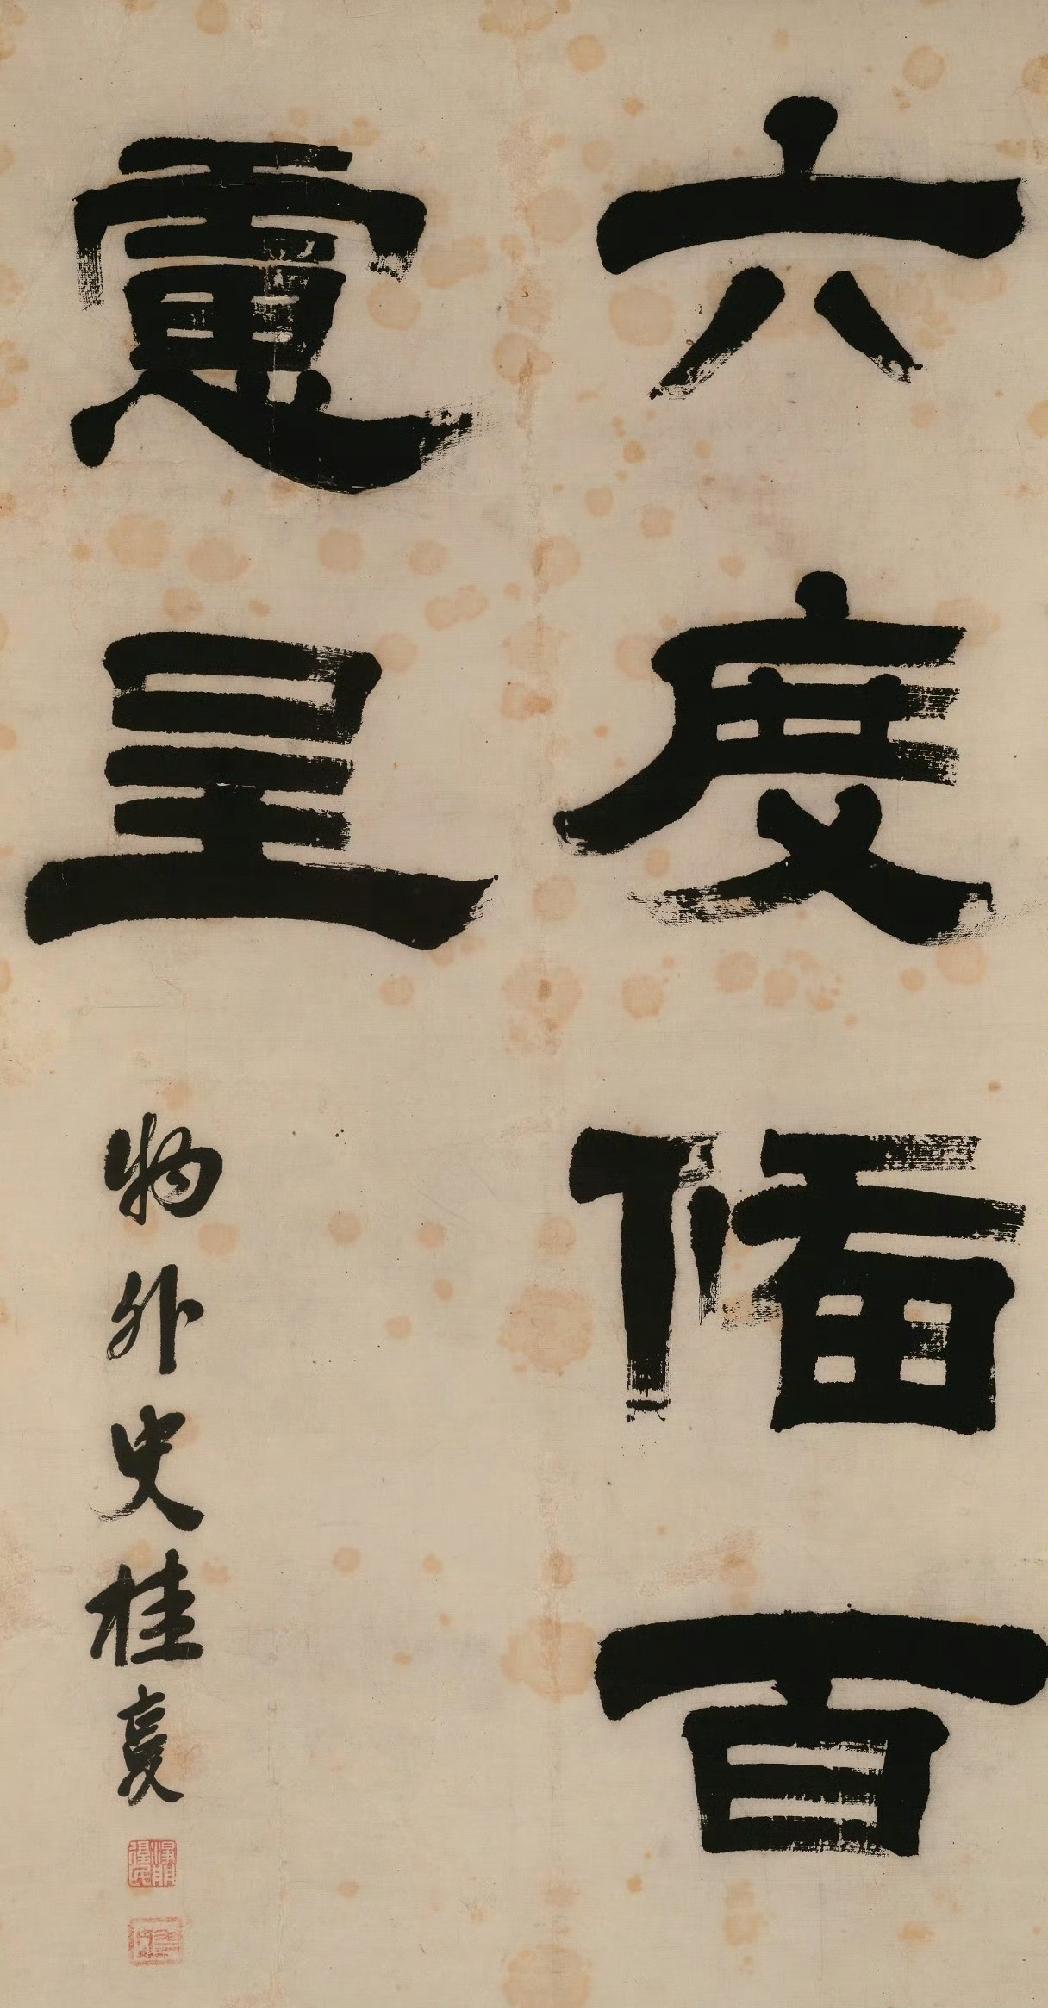 六度備百
靈呈
物外史桂馥